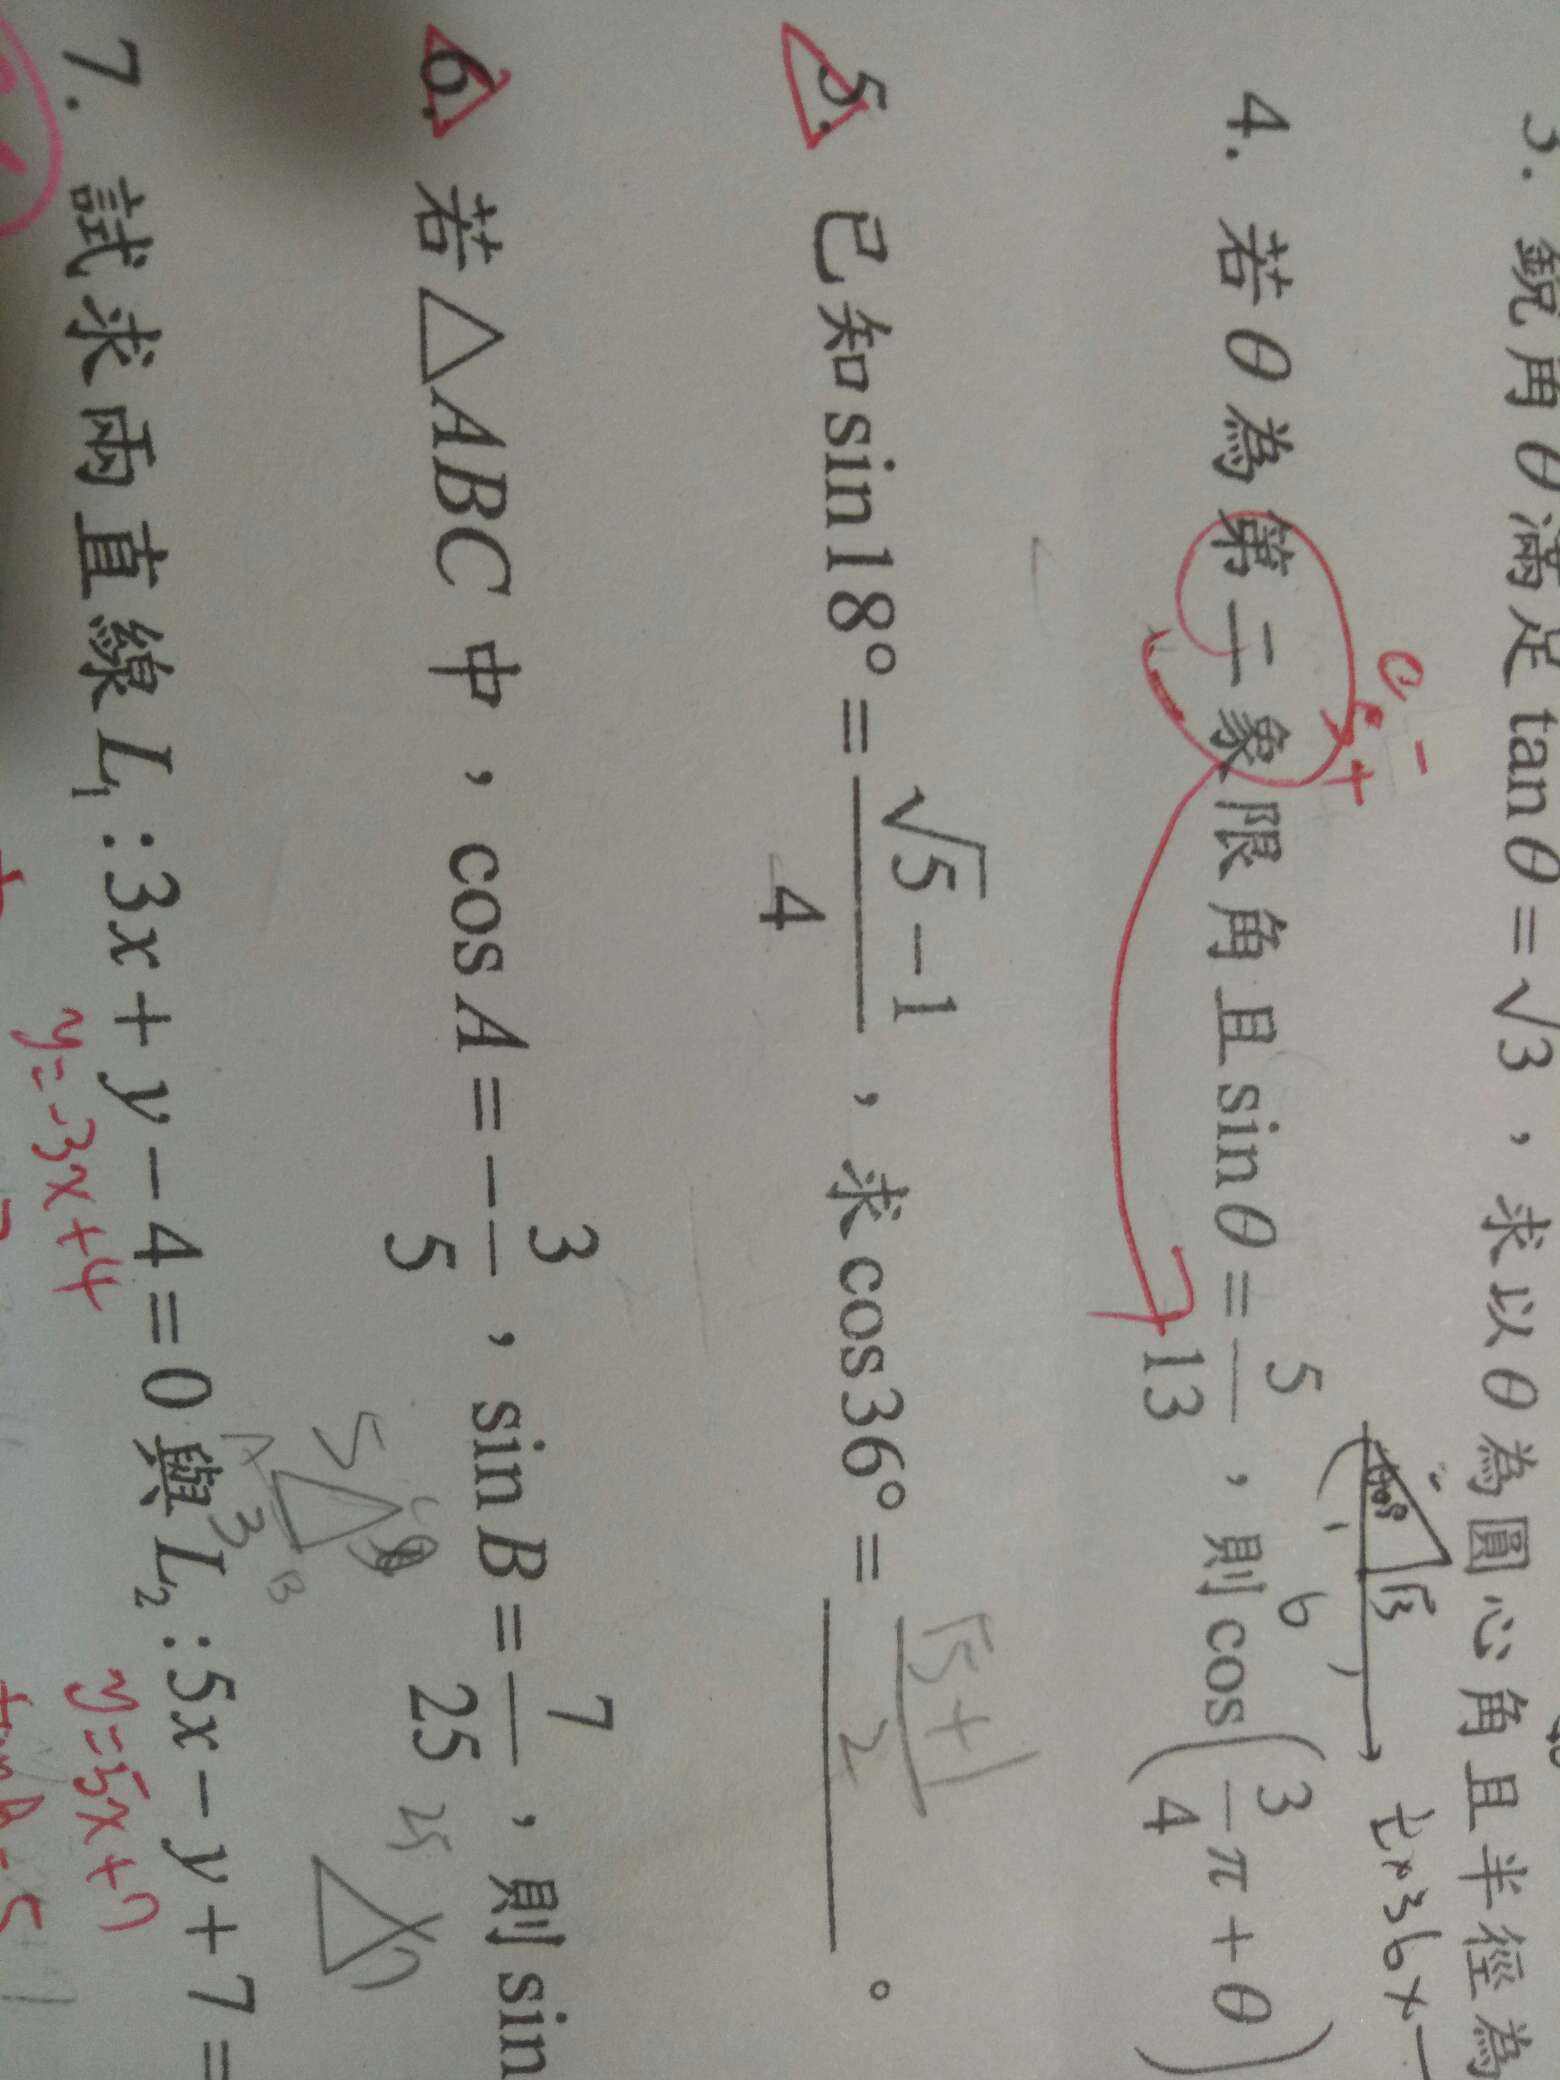 3. 銳角θ滿足tanθ=√3，求以θ為圓心角且半徑為
60° 1 √3
½×36×
4. 若θ為第二象限角且sinθ=5/13，則cos(3/4π+θ)
6
5. 已知sin18°=(√5-1)/4，求cos36°=______。
√5+1/2
6. 若△ABC中，cosA=-3/5，sinB=7/25，則sin
5 3 A B
25 7
7. 試求兩直線L₁:3x+y-4=0與L₂:5x-y+7=
y=-3x+4
y=5x+7